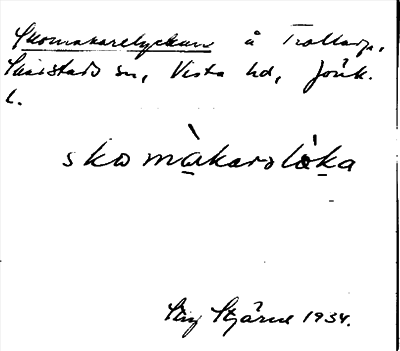 Skomakarelyckan å Trollarp,
Skärstads sn, Vista hd, Jönk.
L.
skomàkaroløka
Stig Stjärne 1934.